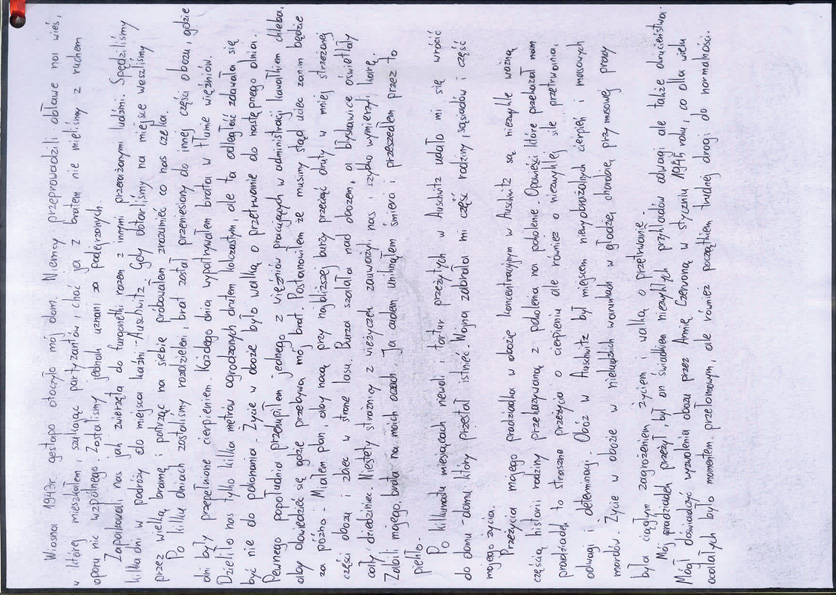 Wiosną 1943r. gestapo otoczyło mój dom. Niemcy przeprowadzili obławę na wieś,
w której mieszkałem, szukając partyzantów i choć ja z bratem nie mieliśmy z ruchem
oporu nic wspólnego. Zostaliśmy jednak uznani za podejrzanych.
Zapakowali nas jak zwierzęta do furgonetki, razem z innymi przerażonymi ludźmi. Spędziliśmy
kilka dni w podróży do miejsca kaźni - Auschwitz. Gdy dotarliśmy na miejsce weszliśmy
przez wielką bramę i patrząc na siebie próbowałem zrozumieć co nas czeka.
Po kilku dniach zostaliśmy rozdzieleni, brat został przeniesiony do innej części obozu, gdzie
dni były przepełnione cierpieniem. Każdego dnia wypatrywałem brata w tłumie więźniów.
Dzieliło nas tylko kilka metrów ogrodzonych drutem kolczastym, ale ta odległość zdawała się
być nie do pokonania. Życie w obozie było walką o przetrwanie do następnego dnia.
Pewnego popołudnia przekupiłem jednego z więźniów pracujących w administracji kawałkiem chleba,
aby dowiedzieć się gdzie przebywa mój brat. Postanowiłem że musimy stąd uciec zanim będzie
za późno. Miałem plan, aby nocą przy najbliższej burzy przeciąć druty w mniej strzeżonej
części obozu i zbiec w stronę lasu. Burza szalała nad obozem, a błyskawice oświetlały
cały dziedziniec. Niestety strażnicy z wieżyczek zauważyli nas i szybko wymierzyli karę.
Zabili mojego brata na moich oczach. Ja cudem uniknąłem śmierci i przeszedłem przez to
piekło.
Po kilkunastu miesiącach niewoli i tortur przeżytych w Auschwitz udało mi się wrócić
do domu - domu, który przestał istnieć. Wojna zabrała mi część rodziny, sąsiadów i część
mojego życia.
Przeżycia mojego pradziadka w obozie koncentracyjnym w Auschwitz są niezwykle ważną
częścią historii rodziny przekazywaną z pokolenia na pokolenie. Opowieści które przekazał nam
pradziadek to straszne przeżycia o cierpieniu ale również o niezwykłej sile przetrwania,
odwagi i determinacji. Obóz w Auschwitz był miejscem niewyobrażalnych cierpień i masowych
mordów. Życie w obozie w nieludzkich warunkach w głodzie, chorobie, przymusowej pracy
była ciągłym zagrożeniem życiem walką o przetrwanie.
Mój pradziadek przeżył, był on świadkiem niezwykłych przykładów odwagi ale także okrucieństwa.
Mógł doświadczyć wyzwolenia obozu przez Armię Czerwoną w styczniu 1945 roku, co dla wielu
ocalałych było momentem przełomowym, ale również początkiem trudnej drogi do normalności.